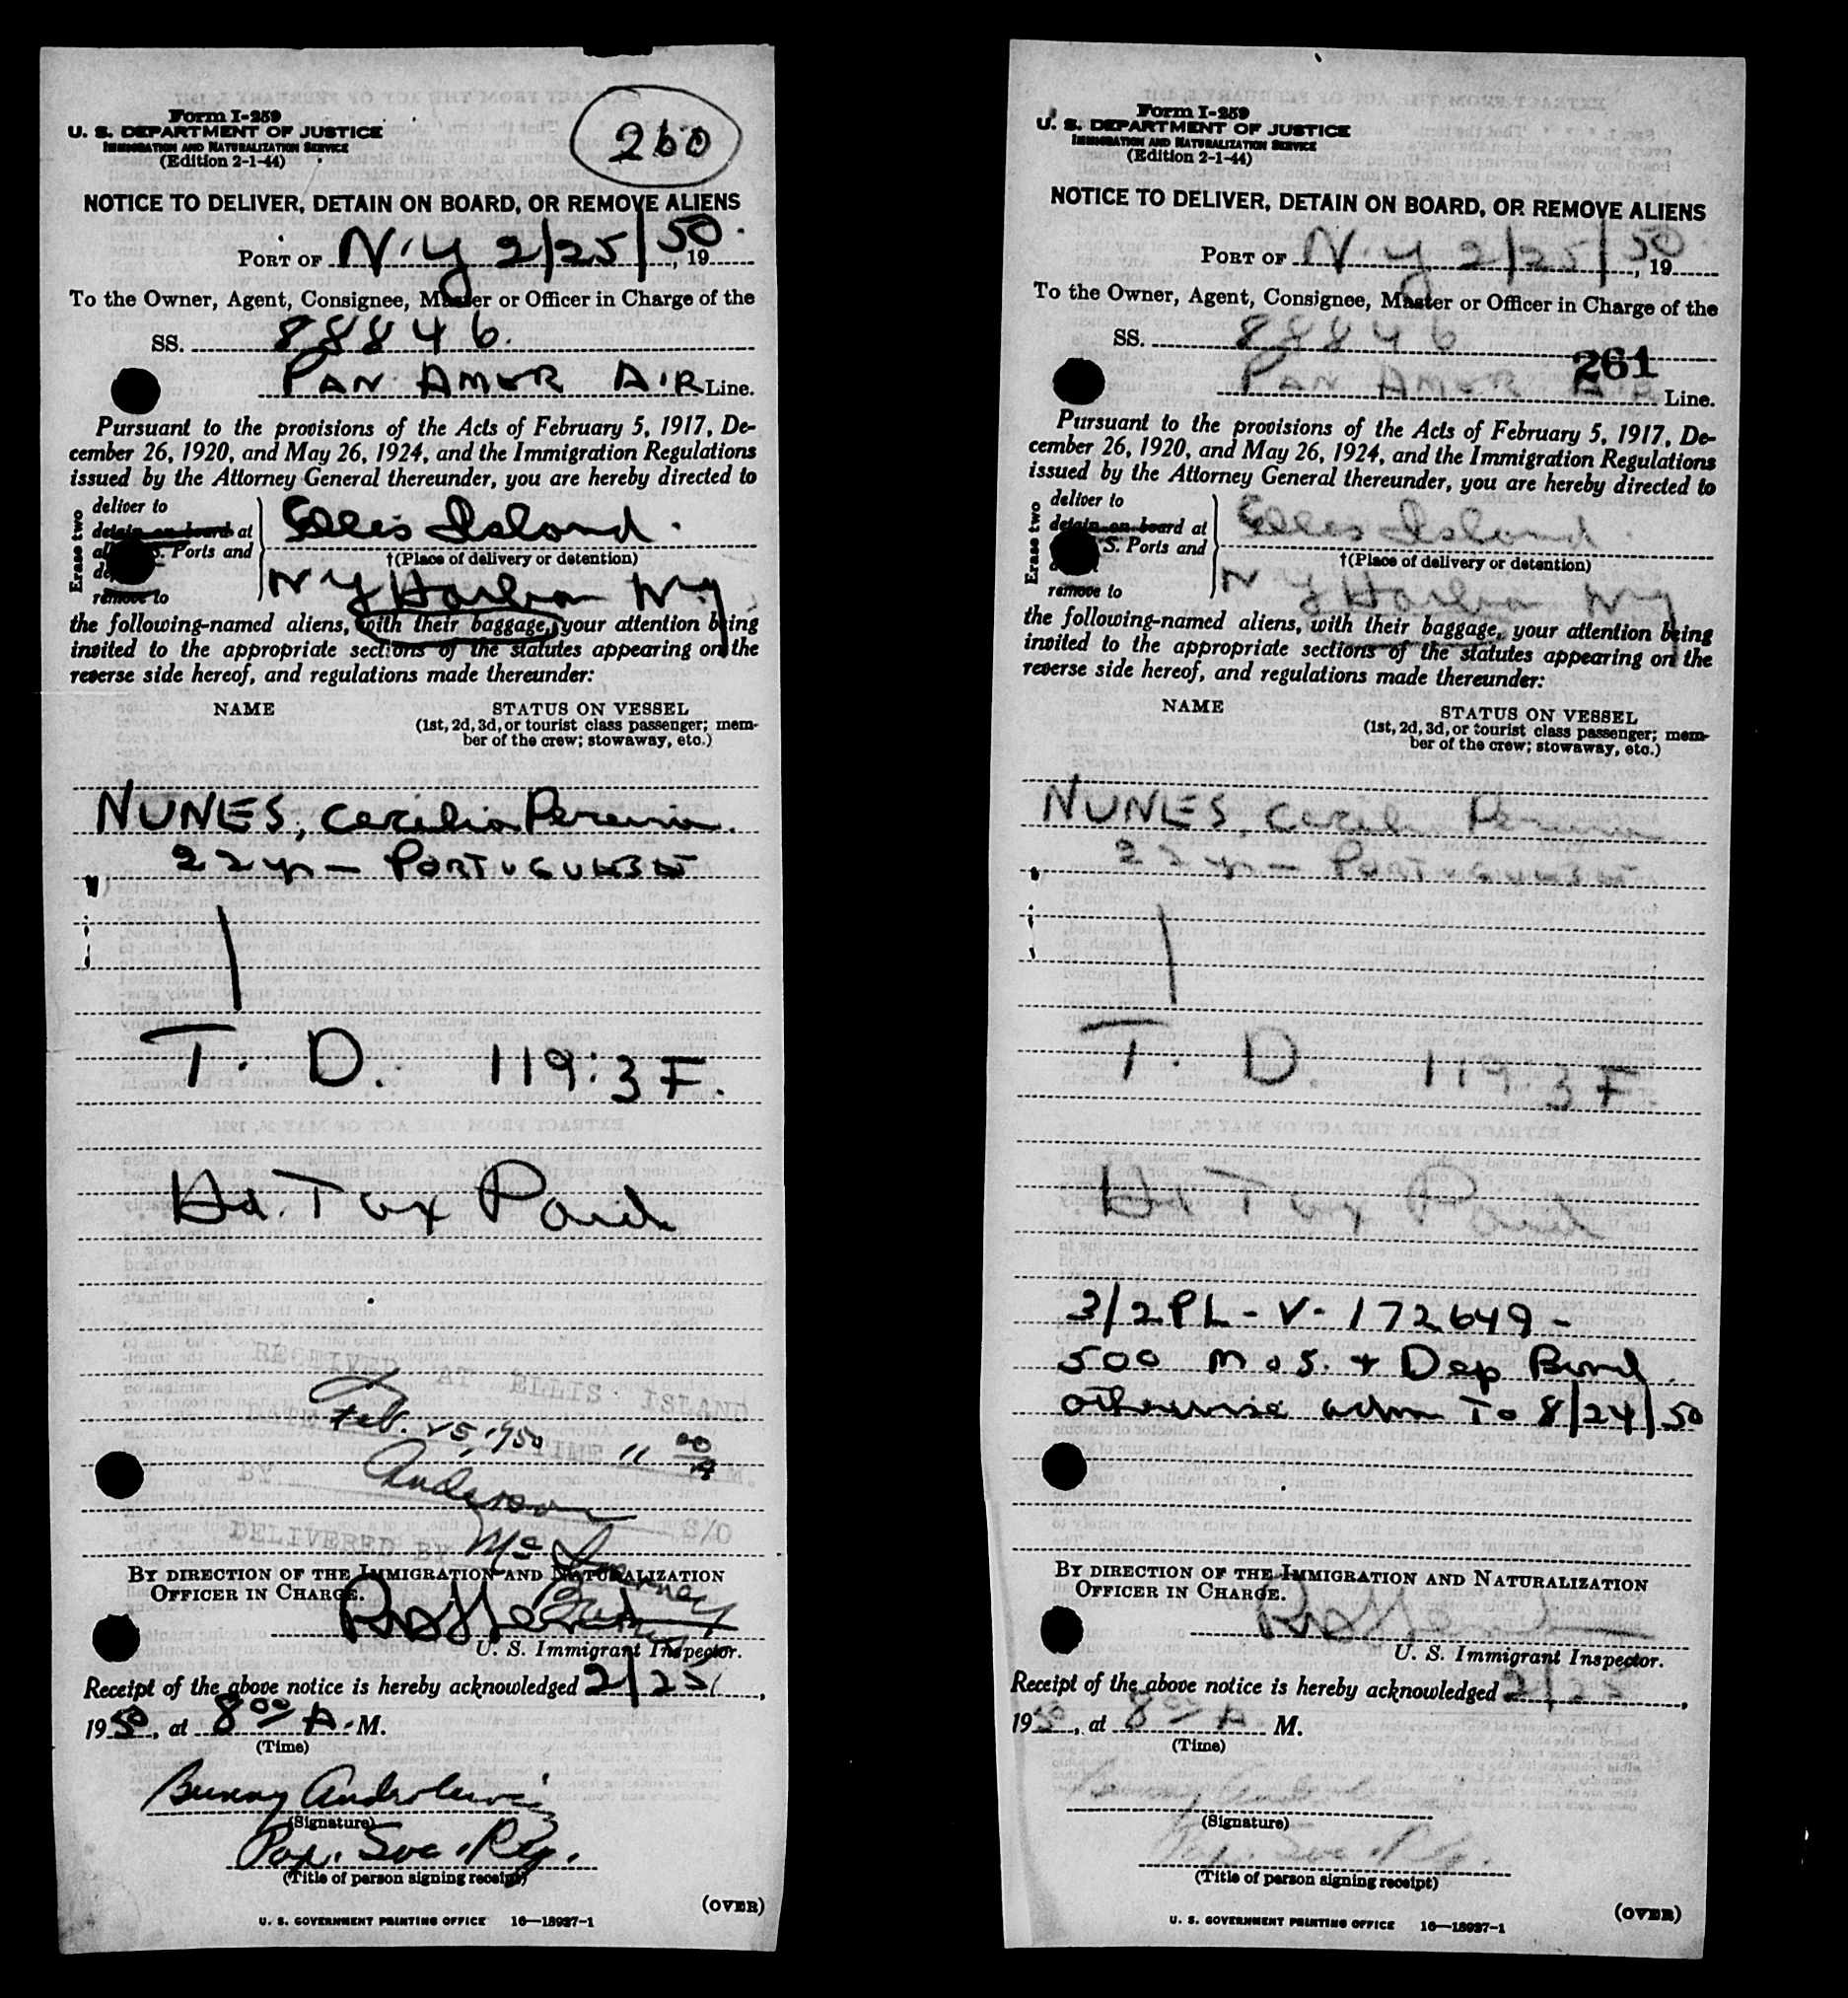 Form I-259
U. S. DEPARTMENT OF JUSTICE
IMMIGRATION AND NATURALIZATION SERVICE
(Edition 2-1-44)
260
NOTICE TO DELIVER, DETAIN ON BOARD, OR REMOVE ALIENS
PORT OF N.Y 2/25/50, 19
To the Owner, Agent, Consignee, Master or Officer in Charge of the
SS. 88846.
PAN AMER AIR Line.
Pursuant to the provisions of the Acts of February 5, 1917, De-
cember 26, 1920, and May 26, 1924, and the Immigration Regulations
issued by the Attorney General thereunder, you are hereby directed to
Erase two
deliver to
detain on board at
S. Ports and
remove to
Ellis Island.
†(Place of delivery or detention)
N Y Harbor N.Y
the following-named aliens, with their baggage, your attention being
invited to the appropriate sections of the statutes appearing on the
reverse side hereof, and regulations made thereunder:
NAME
STATUS ON VESSEL
(1st, 2d, 3d, or tourist class passenger; mem-
ber of the crew; stowaway, etc.)
NUNES, Cecilia Pereira.
22 yr - PORTUGUESE
T. D. 119:3F.
Hd. Tax Paid
RECEIVED AT ELLIS ISLAND
DATE Feb. 25, 1950 TIME 11 00 A M.
BY Anderson S/O
DELIVERED BY
BY DIRECTION OF THE IMMIGRATION AND NATURALIZATION
OFFICER IN CHARGE.
U. S. Immigrant Inspector.
Receipt of the above notice is hereby acknowledged 2/25,
1950, at 8 00 A. M.
(Time)
(Signature)
(Title of person signing receipt)
(OVER)
U. S. GOVERNMENT PRINTING OFFICE 16—18927-1
Form I-259
U. S. DEPARTMENT OF JUSTICE
IMMIGRATION AND NATURALIZATION SERVICE
(Edition 2-1-44)
NOTICE TO DELIVER, DETAIN ON BOARD, OR REMOVE ALIENS
PORT OF N.Y 2/25/50, 19
To the Owner, Agent, Consignee, Master or Officer in Charge of the
SS. 88846
261
PAN AMER AIR Line.
Pursuant to the provisions of the Acts of February 5, 1917, De-
cember 26, 1920, and May 26, 1924, and the Immigration Regulations
issued by the Attorney General thereunder, you are hereby directed to
Erase two
deliver to
detain on board at
S. Ports and
remove to
Ellis Island.
†(Place of delivery or detention)
N Y Harbor N Y
the following-named aliens, with their baggage, your attention being
invited to the appropriate sections of the statutes appearing on the
reverse side hereof, and regulations made thereunder:
NAME
STATUS ON VESSEL
(1st, 2d, 3d, or tourist class passenger; mem-
ber of the crew; stowaway, etc.)
NUNES, Cecilia Pereira
22 yr - PORTUGUESE
T. D. 119 3F.
Hd Tax Paid
3/2 PL - V - 172649 -
500 M.S. + Dep Bond
otherwise adm To 8/24/50
BY DIRECTION OF THE IMMIGRATION AND NATURALIZATION
OFFICER IN CHARGE.
U. S. Immigrant Inspector.
Receipt of the above notice is hereby acknowledged 2/25,
1950, at 8 00 A M.
(Time)
(Signature)
(Title of person signing receipt)
(OVER)
U. S. GOVERNMENT PRINTING OFFICE 16—18927-1